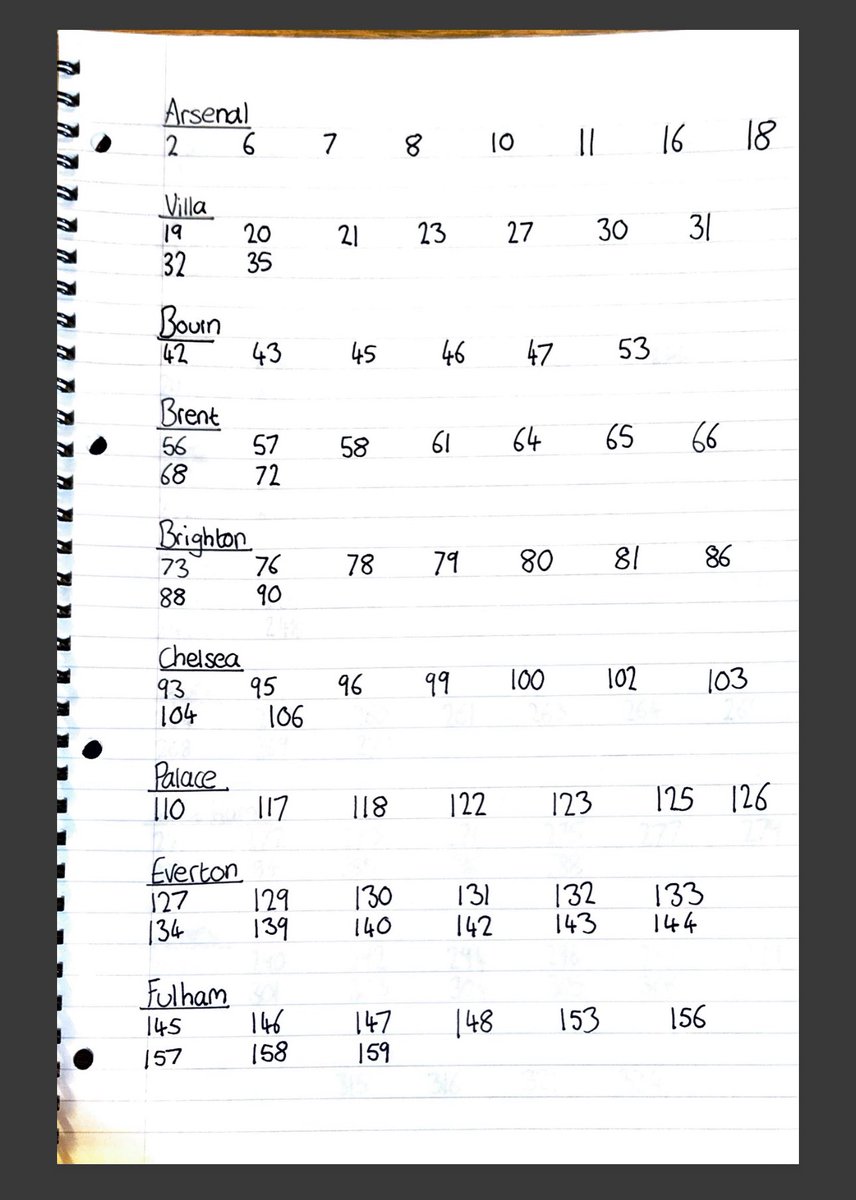 Arsenal
2 6 7 8 10 11 16 18
Villa
19 20 21 23 27 30 31
32 35
Bourn
42 43 45 46 47 53
Brent
56 57 58 61 64 65 66
68 72
Brighton
73 76 78 79 80 81 86
88 90
Chelsea
93 95 96 99 100 102 103
104 106
Palace
110 117 118 122 123 125 126
Everton
127 129 130 131 132 133
134 139 140 142 143 144
Fulham
145 146 147 148 153 156
157 158 159